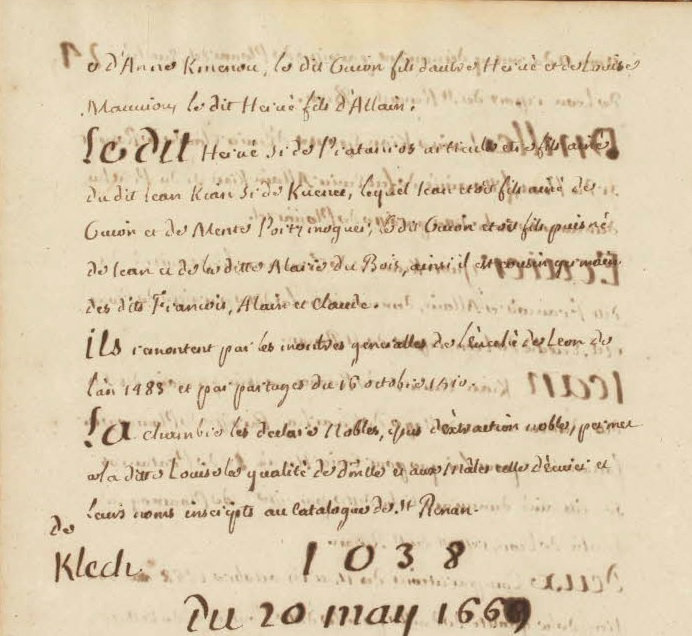 e d'Anne Kmenou, le dit Guion fils d'autre Hervé et de Louise
Mauvieux le dit Hervé fils d'Allain.
Le dit Hervé Sr de articule etre fils ainé
du dit Jean Kian Sr de Kuenet, lequel Jean etoit fils ainé de
Guion et de Mente Portzmoguer, le dit Guion etoit fils puisné
de Jean et de la ditte Marie du Bois, ainsi il est cousin germain
des dits Francois, Alain et Claude.
ils remontent par les montres generalles de l'evesché de Leon de
l'an 1483 et par partages du 16 octobre
La chambre les declare Nobles, issus d'extraction noble, permet
a la ditte Louise la qualité de dmlle et aux Mâles celle d'ecuier et
leurs noms inscripts au Catalogue de St Renan.
de
Klech 1038
Du 20 may 1669